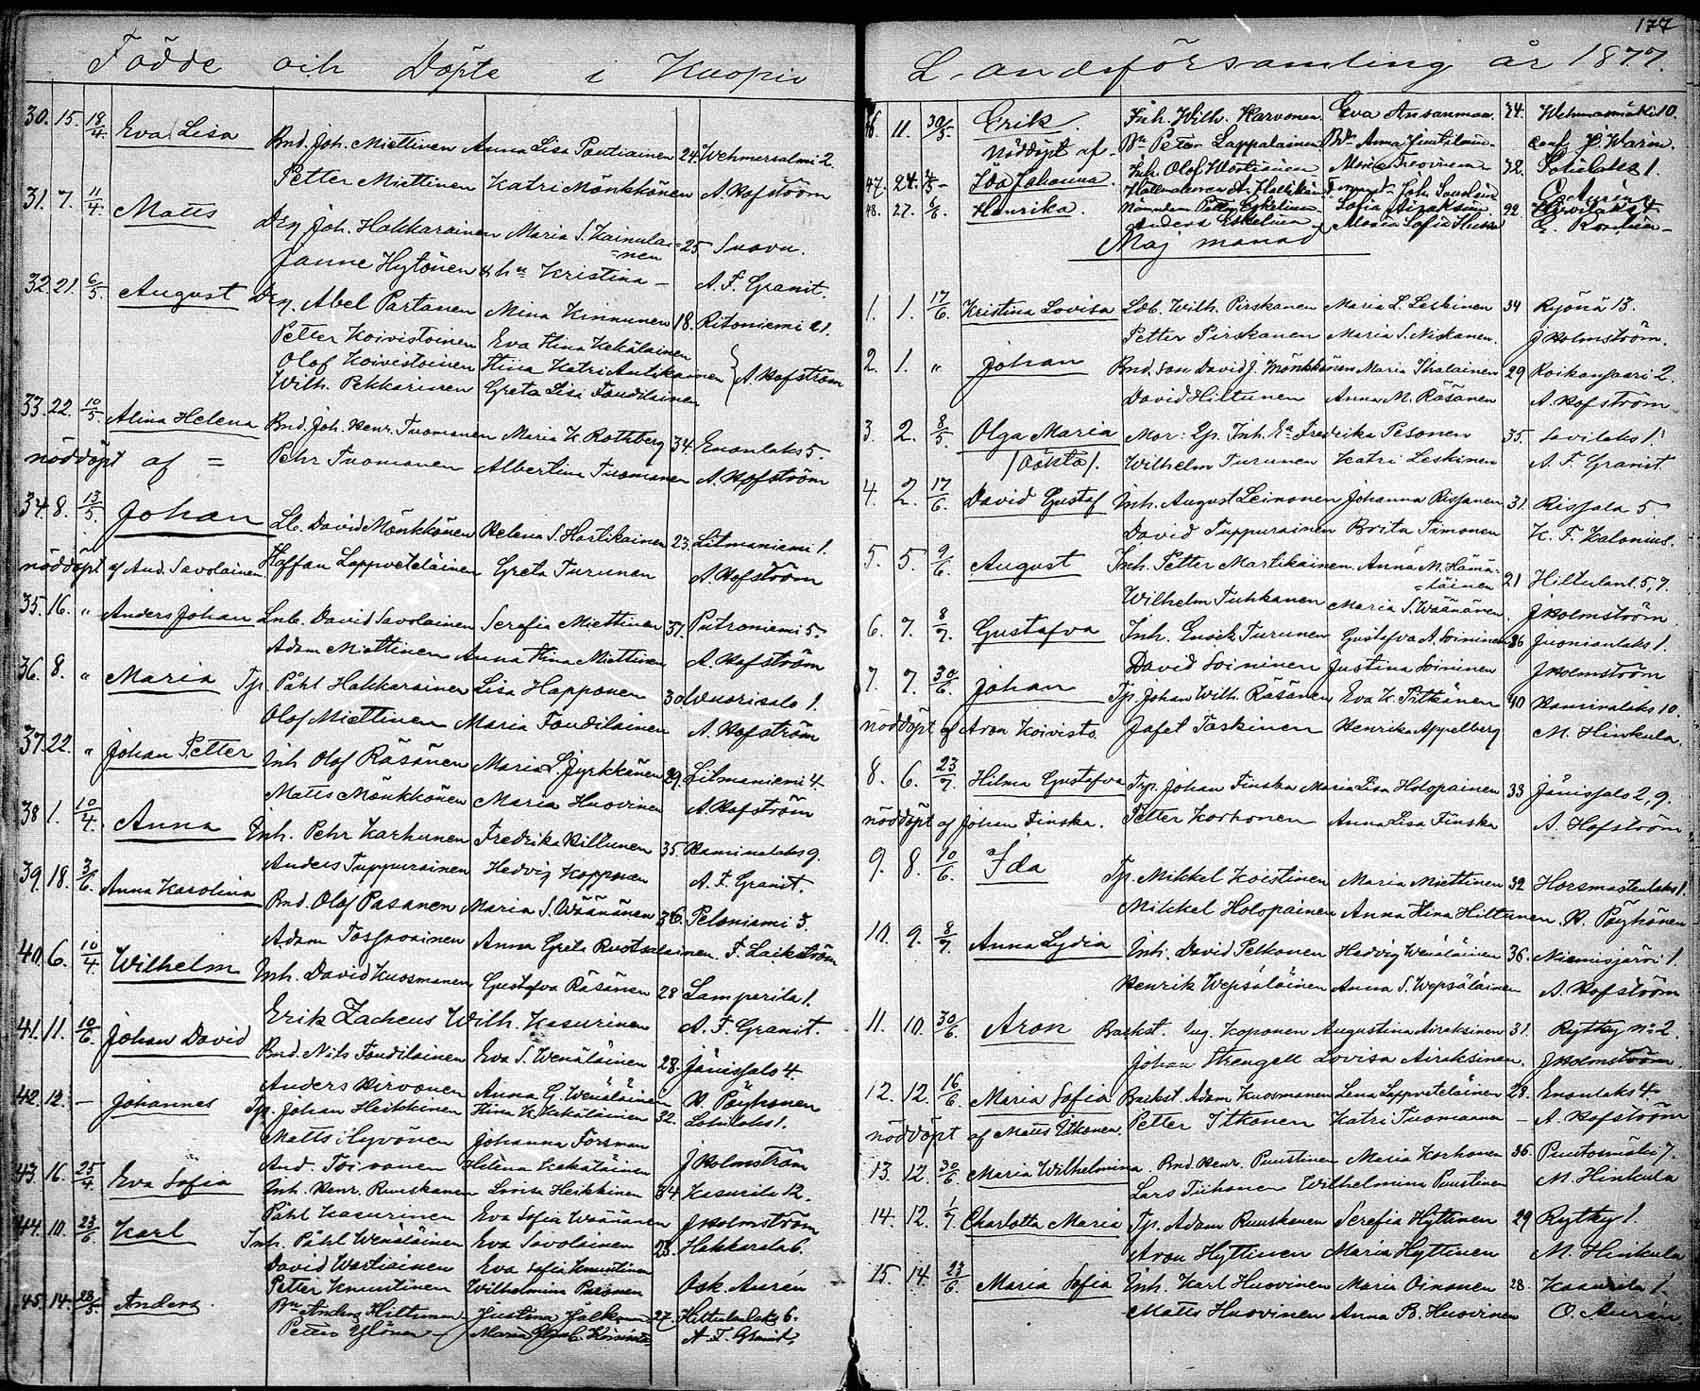 177
Födde och Döpte i Kuopio
30. 15. 18/4. Eva Lisa Bnd. Joh. Miettinen Anna Lisa Pentiainen 24. Wehmersalmi 2.
Petter Miettinen Katri Mönkkönen A. Hofström
31. 7. 11/4. Matts Drg Joh. Hakkarainen Maria S. Kainulai= 25 Suovu.
=nen
Janne Hytönen & hu Kristina — A. F. Granit.
32. 21. 6/5. August Drg. Abel Partanen Mina Kinnunen 18. Ritoniemi 21.
Petter Koivistoinen Eva Stina Kekäläinen
Olof Koivistoinen Stina Katri Antikainen
Wilh. Pekkarinen Greta Lisa Faudilainen A. Hofström
33. 22. 10/5. Alina Helena Bnd. Joh. Henr. Tuomanen Maria K. Rothberg 34. Enonlaks 5.
nöddöpt af = Pehr Tuomanen Albertina Tuomanen A. Hofström
34. 8. 13/5. Johan Lb. David Mönkkönen Helena S. Hartikainen 23. Litmaniemi 1.
nöddöpt af And. Savolainen. Staffan Lappveteläinen Greta Turunen A. Hofström
35. 16. " Anders Johan Lnb. David Savolainen Serafia Miettinen 37. Putroniemi 5.
Adam Miettinen Anna Stina Miettinen A. Hofström
36. 8. " Maria Tp. Påhl Hakkarainen Lisa Happonen 30 Wuorisalo 1.
Olof Miettinen Maria Faudilainen A. Hofström
37. 22. " Johan Petter Inh. Olof Räsänen Maria L. Jyrkkänen 29. Litmaniemi 4.
Matts Mönkkönen Maria Huovinen A. Hofström
38 1. 10/4. Anna Inh. Pehr Karhunen Fredrika Hiltunen 35. Haminalaks 9.
Anders Tuppurainen Hedvig Kopponen A. F. Granit.
39. 18. 3/6. Anna Karolina Bnd. Olof Pasanen Maria S. Wäänänen 36. Peloniemi 3.
Adam Tossavainen Anna Greta Ruotsalainen. F. Laikström
40. 6. 10/4 Wilhelm Inh. David Kuosmanen Gustafva Räsänen 28 Lamperila 1.
Erik Zacheus Wilh. Kasurinen A. F. Granit.
41. 11. 10/6. Johan David Bnd. Nils Faudilainen Eva S. Wenäläinen 28. Jänissalo 4.
Anders Hirvonen Anna G. Wenäläinen H Pöyhönen
42. 12. — Johannes Tp. Johan Heikkinen Stina K. Kekäläinen 32.
Matts Hyvönen Johanna Forsman
And. Toivanen Helena Kekäläinen J Holmström
43. 16. 25/4 Eva Sofia Inh. Henr. Ruuskanen Lovisa Heikkinen 34 Kasurila 12.
Påhl Kasurinen Eva Sofia Wäänänen J Holmström
44. 10. 23/6 Karl Inh. Påhl Wenäläinen Eva Savolainen 23. Hakkarala 6.
David Wartiainen Eva Sofia Knuutinen
Petter Knuutinen Wilhelmina Pasonen Osk. Aurén
45. 14. 28/5. Anders. Bn Anders Hiltunen Justina Jalkanen 27. Hiltulanlaks 6.
Petter Ylönen Maria A. F. Granit.
Landsförsamling år 1877.
46. 11. 30/5 Erik. Inh. Wilh. Karvonen. Eva Ansanmaa. 24. Wehmasmäki 10.
Nöddöpt af Bn Petter Lappalainen Anna
47. 24. Ida Johanna. Inh. Olof Wartiainen Maria 32. 1.
48. 27. 6/6. Henrika. Petter Eskelinen. Sofia Airaksinen. 22.
Anders Eskelinen Maria Sofia
Maj månad
1. 1. 17/6. Kristina Lovisa Lsb. Wilh. Pirskanen Maria L. Leskinen 34 Ryönä 13.
Petter Pirskanen Maria S. Niskanen. J Holmström.
2. 1. " Johan Bnd. son David J. Mönkkönen Maria Ihalainen 29 Roikansaari 2.
David Hiltunen Anna M. Räsänen A. Hofström
3. 2. 8/5. Olga Maria Mor: Ep. Inh. Ea Fredrika Pesonen 35. Savilaks 1.
/Oäkta/. Wilhelm Turunen Katri Leskinen A. F. Granit.
4. 2. 17/6. David Gustaf Inh. August Leinonen Johanna Rissanen 31. Rissala 5
David Tuppurainen Brita Timonen K. F. Kalonius.
5. 5. 9/6. August Inh. Petter Martikainen. Anna M. Hämä-
=läinen 21 Hiltulanl. 5, 7.
Wilhelm Tuhkanen Maria S. Wäänänen J Holmström
6. 7. 8/7. Gustafva Inh. Enock Turunen Gustafva A. Soininen 36 Juonionlaks 1.
David Soininen Justina Soininen J Holmström
7. 7. 30/6. Johan Tp. Johan Wilh. Räsänen Eva K. Pitkänen 40 Haminalaks 10.
nöddöpt af Aron Koivisto. Jafet Taskinen Henrika Appelberg M. Hinkula.
8. 6. 23/7. Hilma Gustafva Trp. Johan Finska Maria Lisa Holopainen 33 Jänissalo 2, 9.
nöddöpt af Johan Finska. Petter Korhonen Anna Lisa Finska A. Hofström
9. 8. 10/6. Ida Tp. Mikkel Koistinen Maria Miettinen 32 Horsmastenlaks 1.
Mikkel Holopainen Anna Stina Hiltunen H. Pöyhönen
10. 9. 8/7. Anna Lydia Inh. David Pelkonen Hedvig Wenäläinen 36. Niemisjärvi 1.
Henrik Wepsäläinen Anna S. Wepsäläinen A. Hofström
11. 10. 30/6. Aron Backst. Aug. Koponen Augustina Airaksinen 31. Rytky No 2.
Johan Strengell Lovisa Airaksinen. J Holmström.
12. 12. 16/6. Maria Sofia Backst. Adam Kuosmanen Lena Lappveteläinen 28. Enonlaks 4.
nöddöpt af Matts Itkonen. Petter Itkonen Katri Tuomanen — A. Hofström
13. 12. 30/6. Maria Wilhelmina. Bnd. Henr. Puustinen Maria Korhonen 36. Puutosmäki 7.
Lars Tiihonen Wilhelmina Puustinen M. Hinkula
14. 12. 1/7. Charlotta Maria Tp. Adam Ruuskanen Serafia Hyttinen 29 Rytky 1.
Aron Hyttinen Maria Hyttinen M. Hinkula
15. 14. 23/6. Maria Sofia Inh. Karl Huovinen Maria Oinonen 28. Kasurila 1.
Matts Huovinen Anna B. Huovinen O. Aurén.